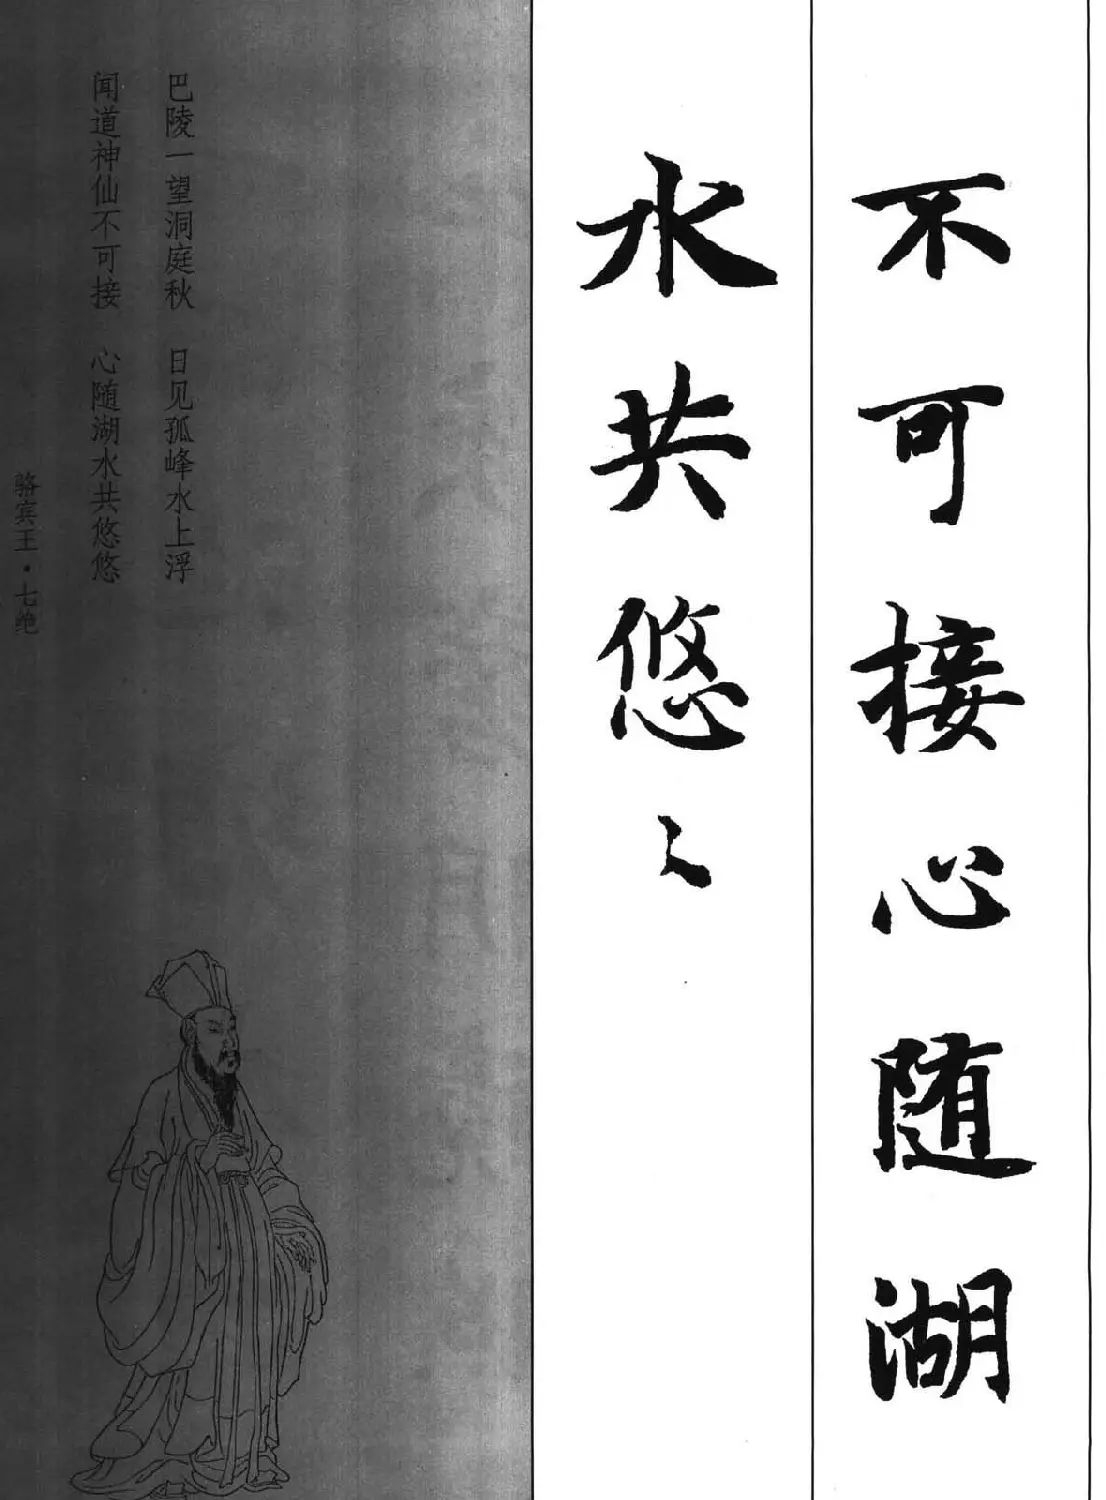 不可接心随湖
水共悠〻
巴陵一望洞庭秋 日见孤峰水上浮
闻道神仙不可接 心随湖水共悠悠
骆宾王·七绝